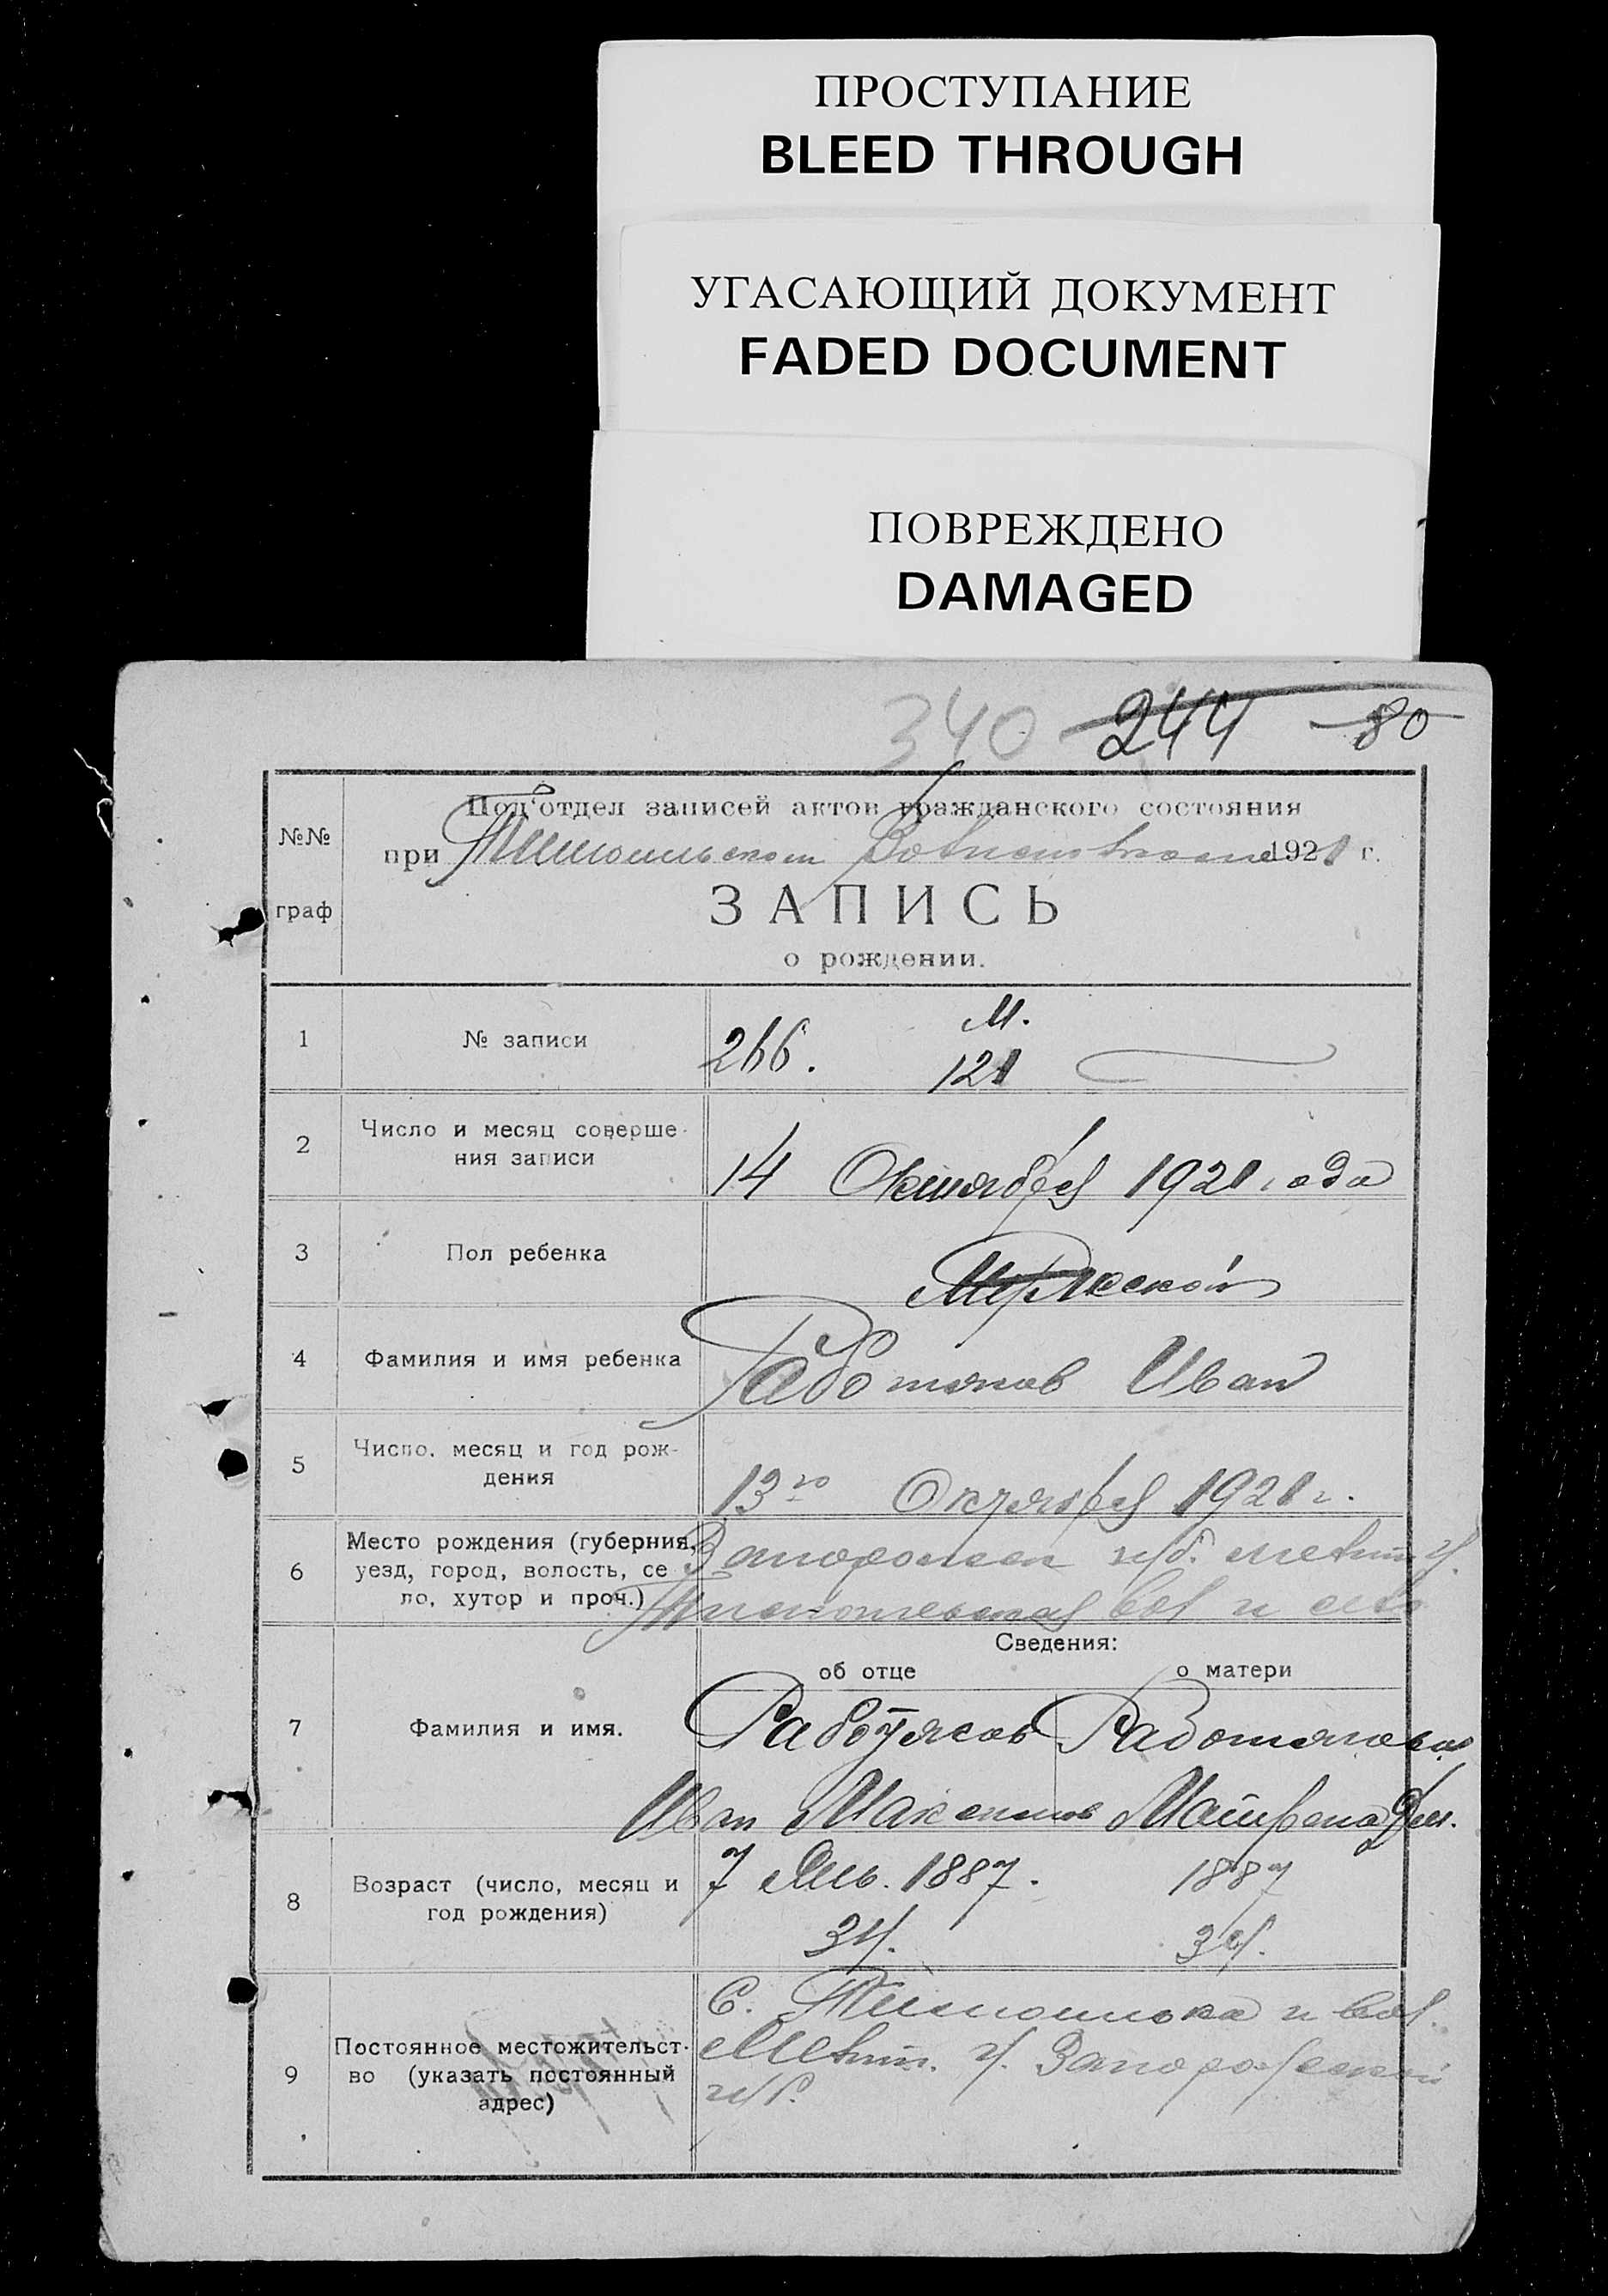 ПРОСТУПАНИЕ
BLEED THROUGH
УГАСАЮЩИЙ ДОКУМЕНТ
FADED DOCUMENT
ПОВРЕЖДЕНО
DAMAGED
340 244 80
№№ граф
Под‘отдел записей актов гражданского состояния
при 1921 г.
ЗАПИСЬ
о рождении.
1 № записи 266. М. 121
2 Число и месяц соверше-
ния записи 14 Октября 1921 года
3 Пол ребенка Мужской
4 Фамилия и имя ребенка Работяков Иван
5 Число, месяц и год рож-
дения 13го Октября 1921 г.
6 Место рождения (губерния,
уезд, город, волость, се
ло, хутор и проч.)
вол и село
Сведения:
об отце о матери
7 Фамилия и имя. Работяков Работякова
Иван Максимов Матрена
8 Возраст (число, месяц и
год рождения) 7 Янв. 1887. 1887
34. 34.
9 Постоянное местожительст-
во (указать постоянный
адрес)
С. Тимошовка и вол.
Мелит. у. Запорожской
губ.